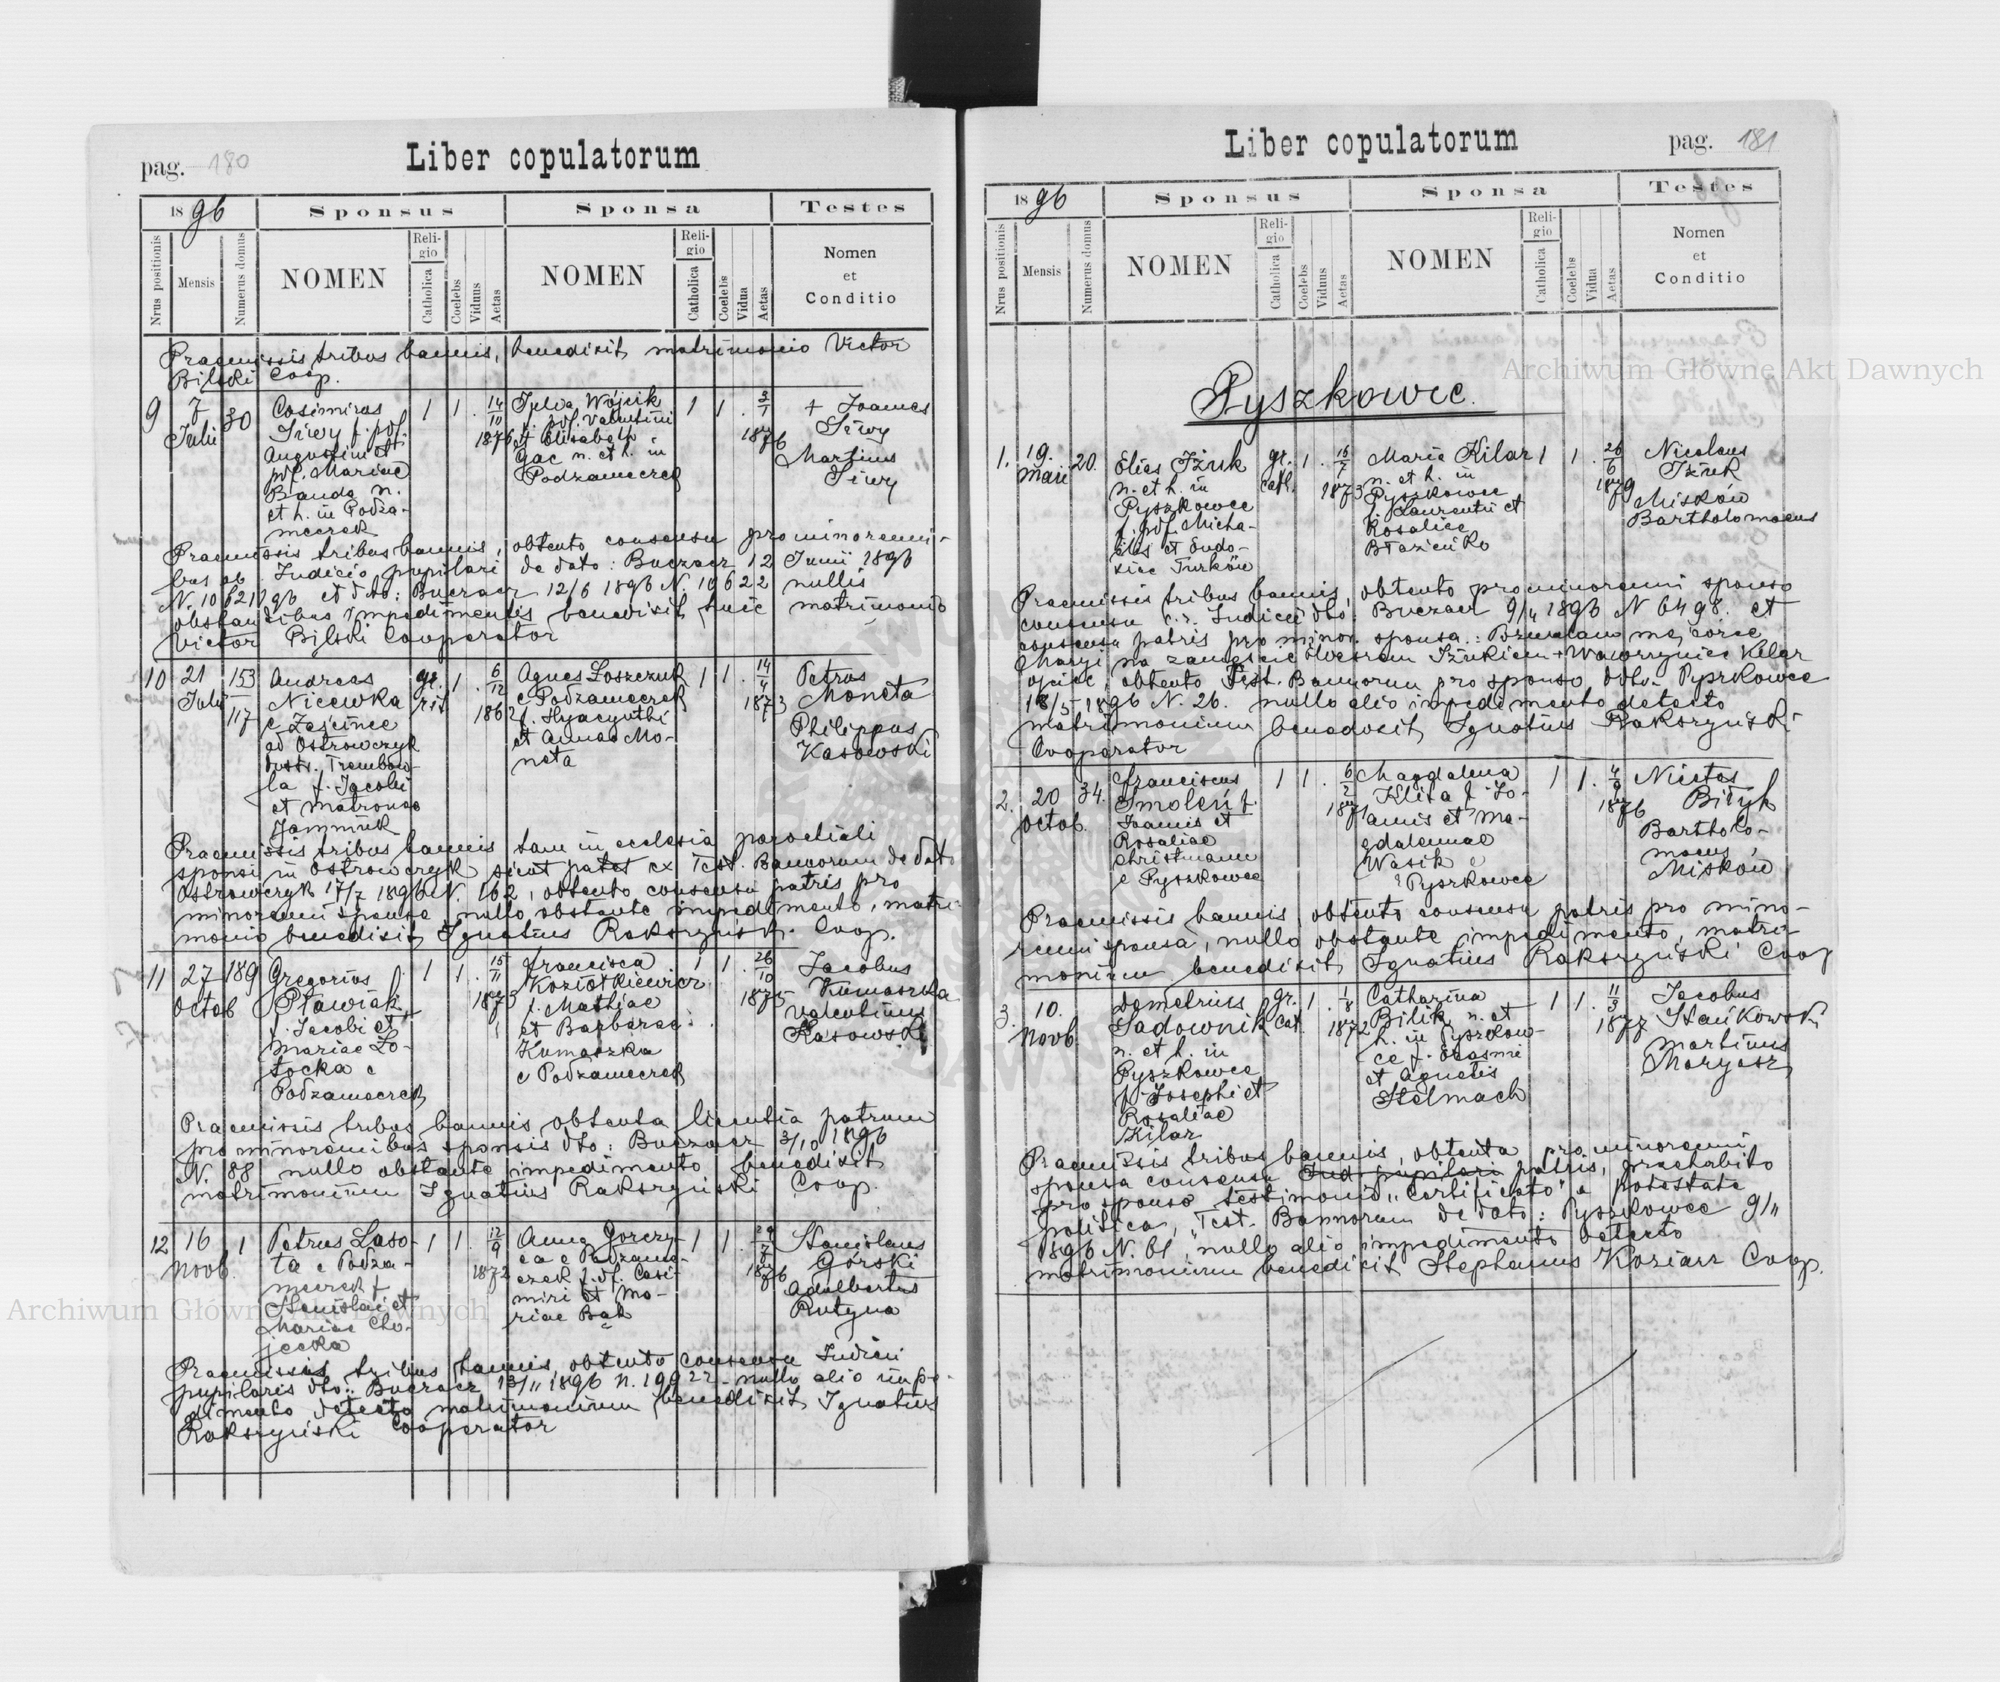 pag. 180
Liber copulatorum
1896
Sponsus
Sponsa
Testes
Nrus positionis
Mensis
Numerus domus
NOMEN
Religio
Catholica
Coelebs
Viduus
Aetas
NOMEN
Religio
Catholica
Coelebs
Vidua
Aetas
Nomen
et
Conditio
Praemissis tribus bannis, benedixit matrimonio Victor
Bilski Coop.
9 7 Julii 30
Casimirus
Siwy f. pdf.
Augustini et
pdf. Mariae
Banda n.
et h. in Podza-
meczek
1 1 . 14/10 1876
Julia Wójcik
f. pdf. Valentini
et Elisabeth
Gac n. et h. in
Podzameczek
1 1 . 3/1 1876
+ Joannes
Siwy
Martinus
Siwy
Praemissis tribus bannis, obtento consensu pro minorenni-
bus ab Judicio pupilari de dato: Buczacz 12 Junii 1896
N. 10621/96 et dto: Buczacz 12/6 1896 N. 10622 nullis
obstantibus impedimentis benedixit huic matrimonio
Victor Bilski Cooperator
10 21 Julii 153 117
Andreas
Nicewka
e Zaścinoe
ad Ostrowczyk
distr. Trembow-
la f. Jacobi
et Matronae
Jamniuk
gr. rit 1 . 6/12 1862
Agnes Loszczuk
e Podzameczek
f. Hyacynthi
et Annae Mo-
neta
1 1 . 14/4 1873
Petrus
Moneta
Philippus
Kasowski
Praemissis tribus bannis tam in ecclesia parochiali
sponsi in Ostrowczyk sicut patet ex Test. Bannorum de dato
Ostrowczyk 17/7 1896 N. 162, obtento consensu patris pro
minorenni sponsa, nullo obstante impedimento, matri-
monio benedixit Ignatius Rakszyński. Coop.
11 27 Octob 189
Gregorius
Pławiak
f. Jacobi et
Mariae Ło-
tocka e
Podzameczek
1 1 . 15/11 1873
Francisca
Koziołkiewicz
f. Mathiae
et Barbarae
Kumaszka
e Podzameczek
1 1 . 26/10 1875
Jacobus
Kumaszka
Valentinus
Kasowski
Praemissis tribus bannis obtenta licentia patrum
pro minorenibus sponsis dto: Buczacz 3/10 1896
N. 188 nullo obstante impedimento benedixit
matrimonium Ignatius Rakszyński Coop.
12 16 Novb. 1
Petrus Laso-
ta e Podza-
meczek f.
Stanislai et
Mariae Cho-
jecka
1 1 . 12/9 1872
Anna Gorczy-
ca e Podzame-
czek f. df. Casi-
miri et Ma-
riae Bąk
1 1 . 1876
Stanislaus
Górski
Adalbertus
Rutyna
Praemissis tribus bannis, obtento consensu Judicii
pupilaris dto: Buczacz 13/11 1896 N. 19922 nullo alio impe-
dimento detecto matrimonium benedixit Ignatius
Rakszyński Cooperator
pag. 181
Liber copulatorum
1896
Sponsus
Sponsa
Testes
Nrus positionis
Mensis
Numerus domus
NOMEN
Religio
Catholica
Coelebs
Viduus
Aetas
NOMEN
Religio
Catholica
Coelebs
Vidua
Aetas
Nomen
et
Conditio
Pyszkowce.
1. 19. Maii 20.
Elias Iżuk
n. et h. in
Pyszkowce
f. pdf. Micha-
elis et Eudo-
xiae Turków
gr. cath. 1 .
Maria Kilar
n. et h. in
Pyszkowce
f. Laurentii et
Rosaliae
Błazieńko
1 1 . 26/6 1879
Nicolaus
Iżuk
Misków
Bartholomaeus
Praemissis tribus bannis, obtento pro minorenni sponso
consensu c. r. Judicii dto: Buczacz 9/4 1896 N 6498. et
consensu patris pro minor. sponsa: Pozwalam mej córce
Maryi na zamęście z Iżukiem + Wawrzyniec Kilar
ojciec, obtento Test. Bannorum pro sponso ddto. Pyszkowce
18/5 1896 N. 26. nullo alio impedimento detecto
matrimonium benedixit Ignatius Rakszyński
Cooperator
2. 20 Octob. 34.
Franciscus
Smoleń f.
Joannis et
Rosaliae
Christmann
e Pyszkowce
1 1 . 6/2 1871
Magdalena
Klita f. Jo-
annis et Ma-
gdalenae
Wasik
e Pyszkowce
1 1 . 1876
Nicetas
Biłyk
Bartholo-
maeus
Misków
Praemissis bannis, obtento consensu patris pro mino-
renni sponsa, nullo obstante impedimento, matri-
monium benedixit Ignatius Rakszyński Coop
3. 10. Novb.
Demetrius
Sadownik
n. et h. in
Pyszkowce
f. Josephi et
Rosaliae
Kilar
gr. cat. 1 . 1/8 1872
Catharina
Bilik n. et
h. in Pyszkow-
ce f. Erasmi
et Agnetis
Stelmach
1 1 . 11/3 1877
Jacobus
Stańkowski
Martinus
Maryasz
Praemissis tribus bannis, obtenta pro minorenni
sponsa consensu Jud. pupilari patris, praehabito
pro sponso testimonio "Certificato" a potestate
politica, Test. Bannorum de dato: Pyszkowce 9/11
1896 N. 61, nullo alio impedimento detecto
matrimonium benedixit Stephanus Koziarz Coop.
Archiwum Główne Akt Dawnych
Archiwum Główne Akt Dawnych